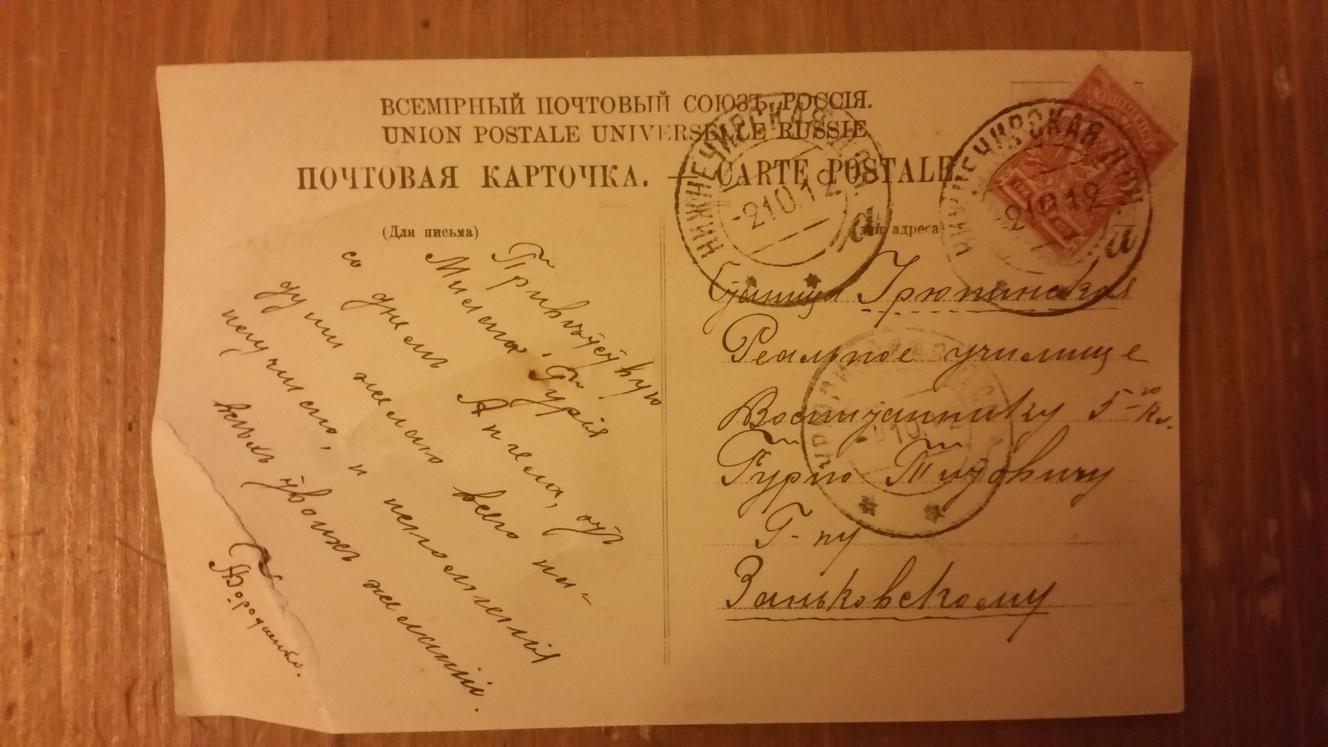 ВСЕМІРНЫЙ ПОЧТОВЫЙ СОЮЗЪ. РОССІЯ.
UNION POSTALE UNIVERSELLE RUSSIE
ПОЧТОВАЯ КАРТОЧКА. — CARTE POSTALE.
(Для письма)
Привѣтствую
Милаго, Гурія
со днемъ Ангела, отъ
души желаю всего наи-
лучшаго, и исполненія
всѣхъ твоихъ желаній.
адреса
Станица Урюпинская
Реальное училище
Воспитаннику 5-го кл.
Гурію Титовичу
Г-ну
Заньковскому
НИЖНЕЧИРСКАЯ ДОН.
-2 10 12
а
НИЖНЕЧИРСКАЯ ДОН.
-2 10 12
а